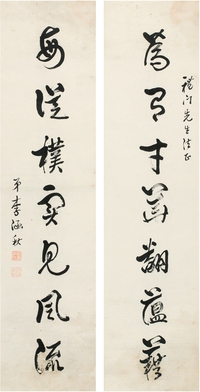 先生法正
為有才華翻蘊藉
每從樸實見風流
弟李涵秋